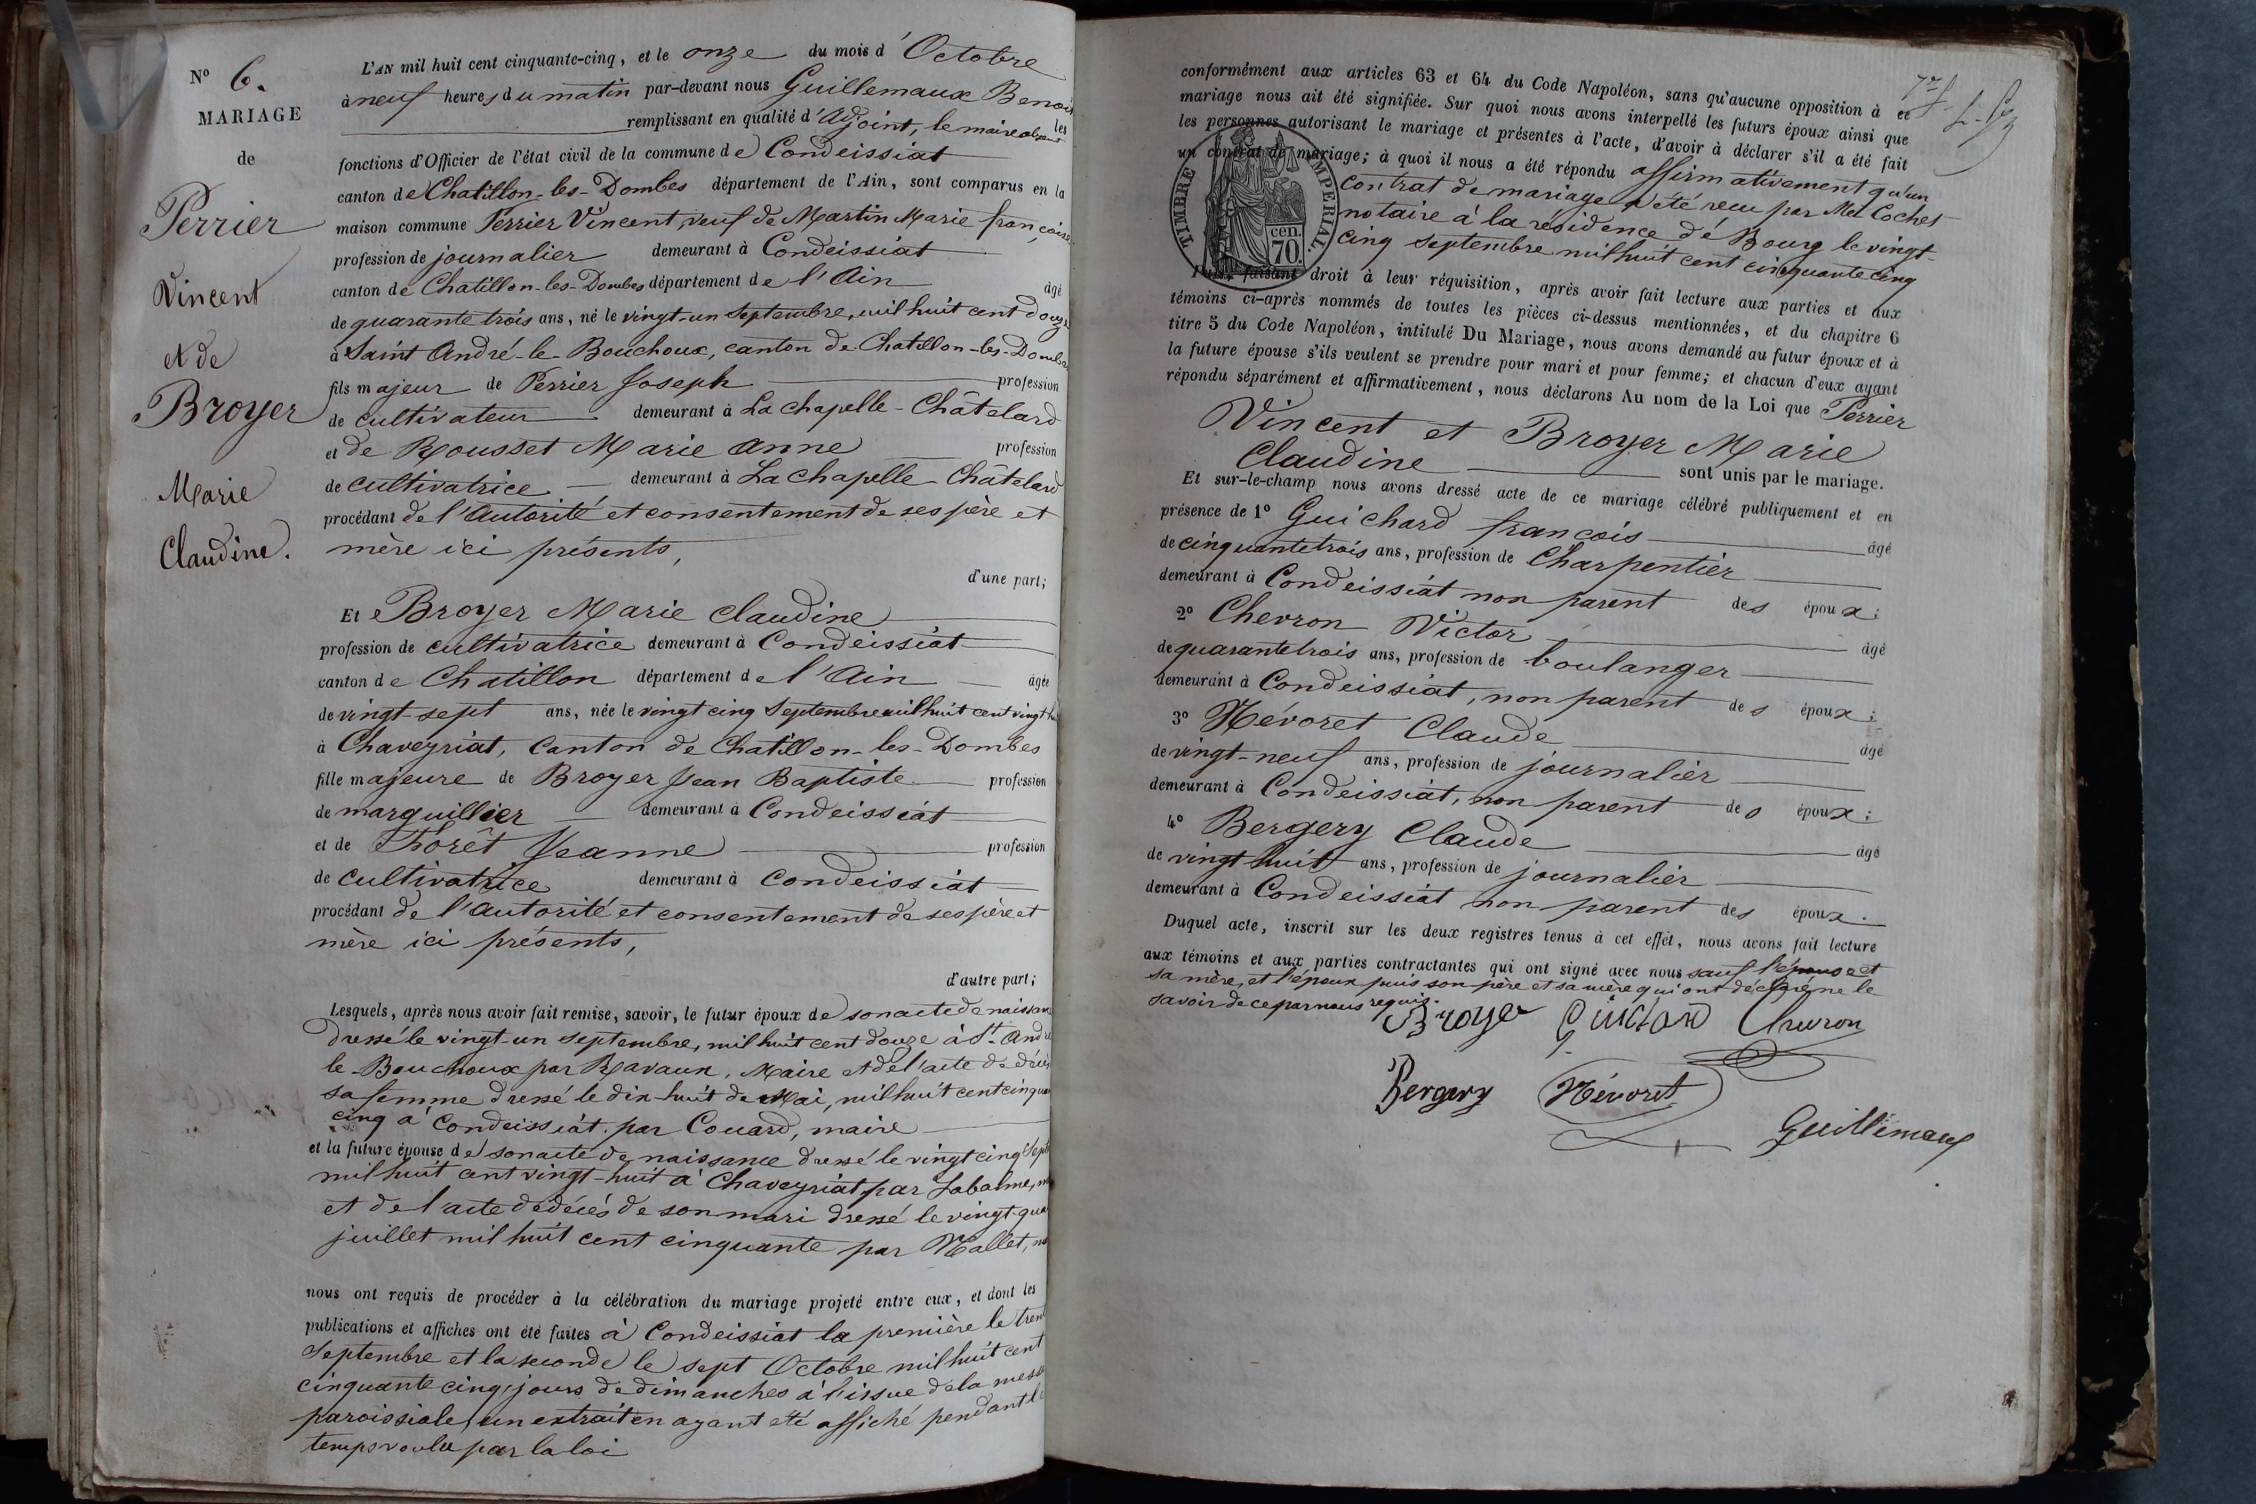 N° 6.
MARIAGE
de
Perrier
Vincent
et de
Broyer
Marie
Claudine.
L'AN mil huit cent cinquante-cinq, et le onze du mois d'Octobre
à neuf heures du matin par-devant nous Guillemaux Benoit
remplissant en qualité d'Adjoint, le maire absent les
fonctions d'Officier de l'état civil de la commune de Condeissiat
canton de Chatillon-les-Dombes département de l'Ain, sont comparus en la
maison commune Perrier Vincent, veuf de Martin Marie françoise
profession de journalier demeurant à Condeissiat
canton de Chatillon-les-Dombes département de l'Ain âgé
de quarante trois ans, né le vingt-un Septembre, mil huit cent douze
à Saint André-le-Bouchoux, canton de Chatillon-les-Dombes
fils majeur de Perrier Joseph profession
de cultivateur demeurant à La chapelle-Châtelard
et de Rousset Marie anne profession
de cultivatrice demeurant à La chapelle-Châtelard
procédant de l'Autorité et consentement de ses père et
mère ici présents,
d'une part;
Et Broyer Marie Claudine
profession de cultivatrice demeurant à Condeissiat
canton de Chatillon département de l'Ain âgée
de vingt-sept ans, née le vingt cinq Septembre mil huit cent vingt h
à Chaveyriat, Canton de Chatillon-les-Dombes
fille majeure de Broyer Jean Baptiste profession
de marguillier demeurant à Condeissiat
et de Thorêt Jeanne profession
de cultivatrice demeurant à Condeissiat
procédant de l'autorité et consentement de ses père et
mère ici présents,
d'autre part;
Lesquels, après nous avoir fait remise, savoir, le futur époux de son acte de naissan
dressé le vingt-un septembre, mil huit cent douze à St. André
le-Bouchoux par Ravaux, Maire et de l'acte de décès
sa femme dressé le dix-huit de Mai, mil huit cent cinquan
cinq à Condeissiat par Couard, maire
et la future épouse de son acte de naissance dressé le vingt cinq Sept
mil huit cent vingt-huit à Chaveyriat par Labalme, m
et de l'acte de décès de son mari dressé le vingt-qua
juillet mil huit cent cinquante par Mallet, m
nous ont requis de procéder à la célébration du mariage projeté entre eux, et dont les
publications et affiches ont été faites à Condeissiat la première le tren
Septembre et la seconde le sept Octobre mil huit cent
cinquante cinq, jours de dimanches à l'issue de la messe
paroissiale, un extrait en ayant été affiché pendant le
temps voulu par la loi
conformément aux articles 63 et 64 du Code Napoléon, sans qu'aucune opposition à ce
mariage nous ait été signifiée. Sur quoi nous avons interpellé les futurs époux ainsi que
les personnes autorisant le mariage et présentes à l'acte, d'avoir à déclarer s'il a été fait
un contrat de mariage; à quoi il nous a été répondu affirmativement qu'un
contrat de mariage a été reçu par Me Cochet
notaire à la résidence de Bourg le vingt-
cinq septembre mil huit cent cinquante cinq
TIMBRE IMPERIAL.
70. cen.
Puis faisant droit à leur réquisition, après avoir fait lecture aux parties et aux
témoins ci-après nommés de toutes les pièces ci-dessus mentionnées, et du chapitre 6
titre 5 du Code Napoléon, intitulé Du Mariage, nous avons demandé au futur époux et à
la future épouse s'ils veulent se prendre pour mari et pour femme; et chacun d'eux ayant
répondu séparément et affirmativement, nous déclarons Au nom de la Loi que Perrier
Vincent et Broyer Marie
Claudine sont unis par le mariage.
Et sur-le-champ nous avons dressé acte de ce mariage célébré publiquement et en
présence de 1° Guichard françois âgé
de cinquante trois ans, profession de Charpentier
demeurant à Condeissiat non parent des époux;
2° Chevron Victor âgé
de quarante trois ans, profession de boulanger
demeurant à Condeissiat, non parent des époux;
3° Névoret Claude âgé
de vingt-neuf ans, profession de journalier
demeurant à Condeissiat, non parent des époux;
4° Bergery Claude âgé
de vingt huit ans, profession de journalier
demeurant à Condeissiat non parent des époux.
Duquel acte, inscrit sur les deux registres tenus à cet effet, nous avons fait lecture
aux témoins et aux parties contractantes qui ont signé avec nous sauf l'épouse et
sa mère, et l'époux puis son père et sa mère qui ont déclaré ne le
savoir de ce par nous requis.
Broyer Guichard Chevron
Bergery Névoret
Guillemaux